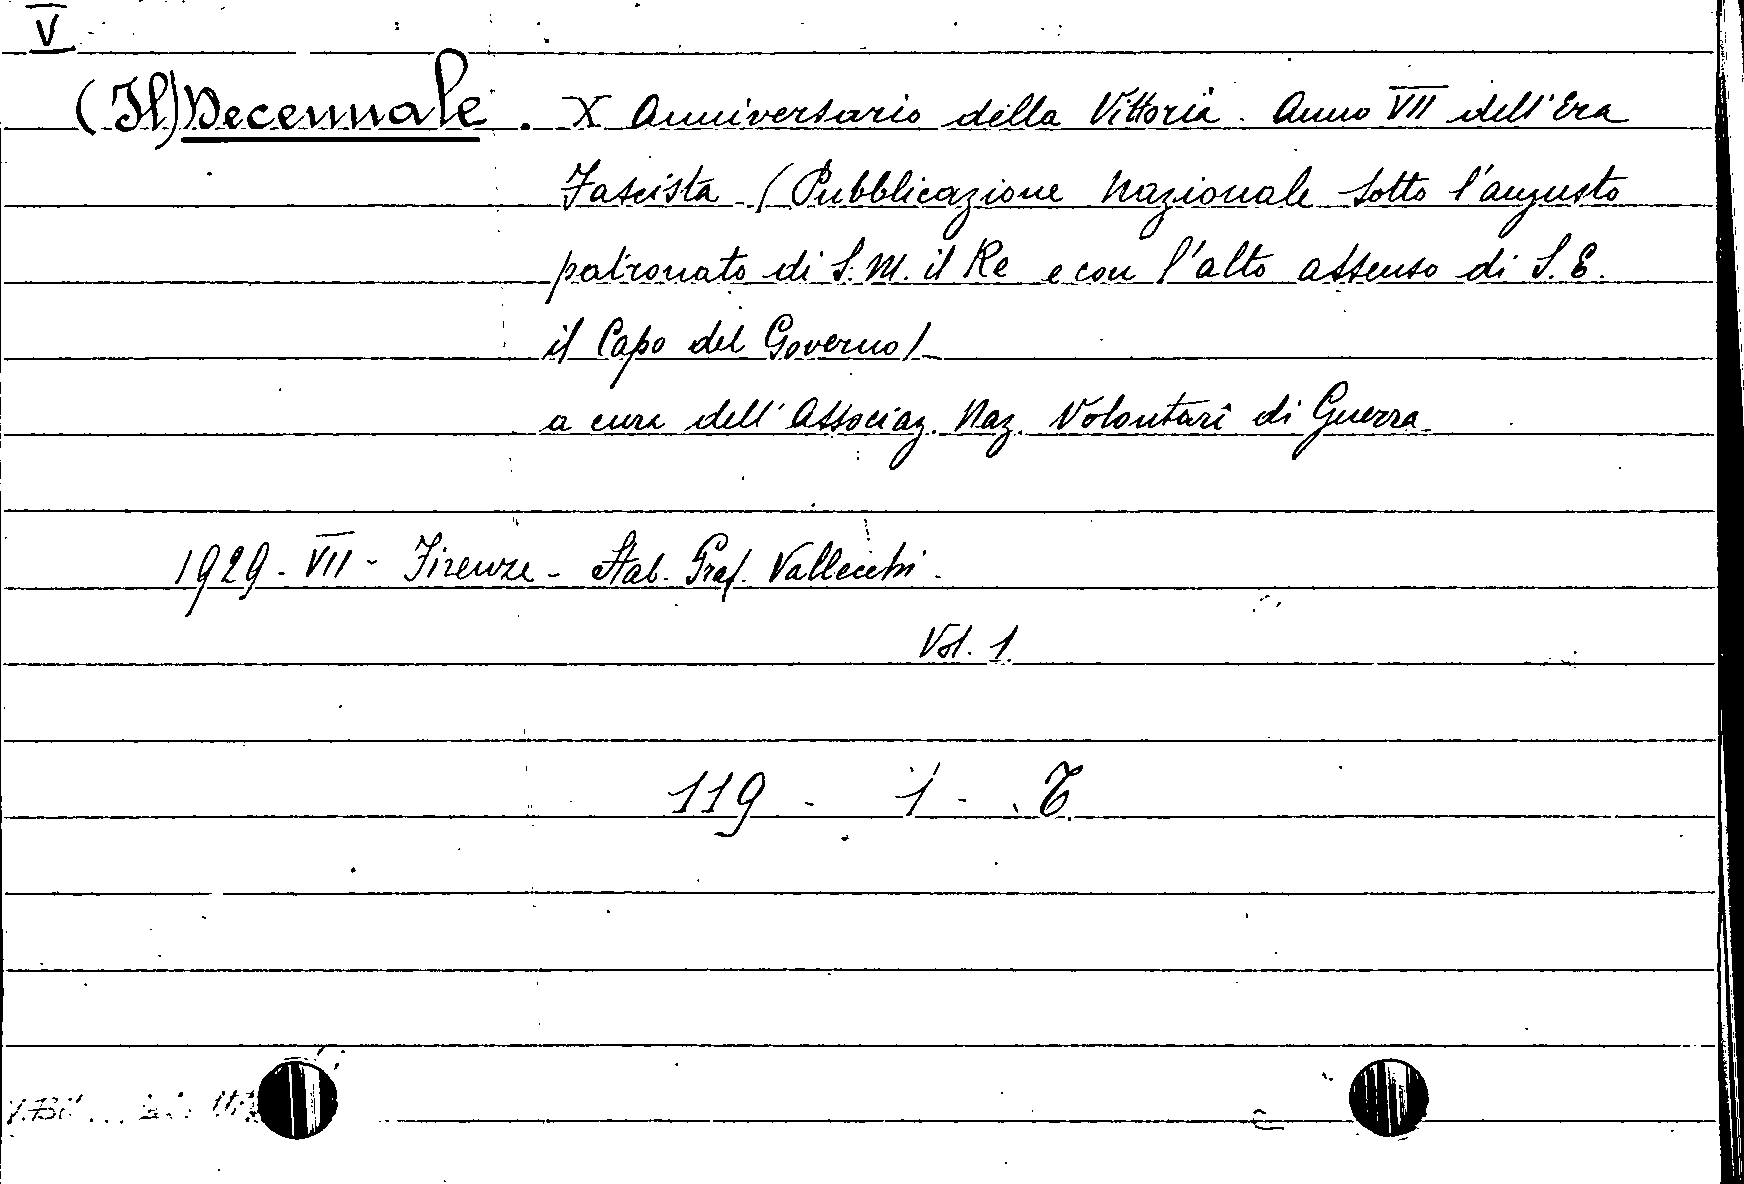 V
(Il) Decennale. X Anniversario della Vittoria. Anno VII dell'Era
Fascista (Pubblicazione Nazionale sotto l'augusto
patronato di S. M. il Re e con l'alto assenso di S. E.
il Capo del Governo)
a cura dell'Associaz. Naz. Volontari di Guerra
1929 - VII - Firenze - Stab. Graf. Vallecchi.
Vol. 1.
119 - 1 - T.